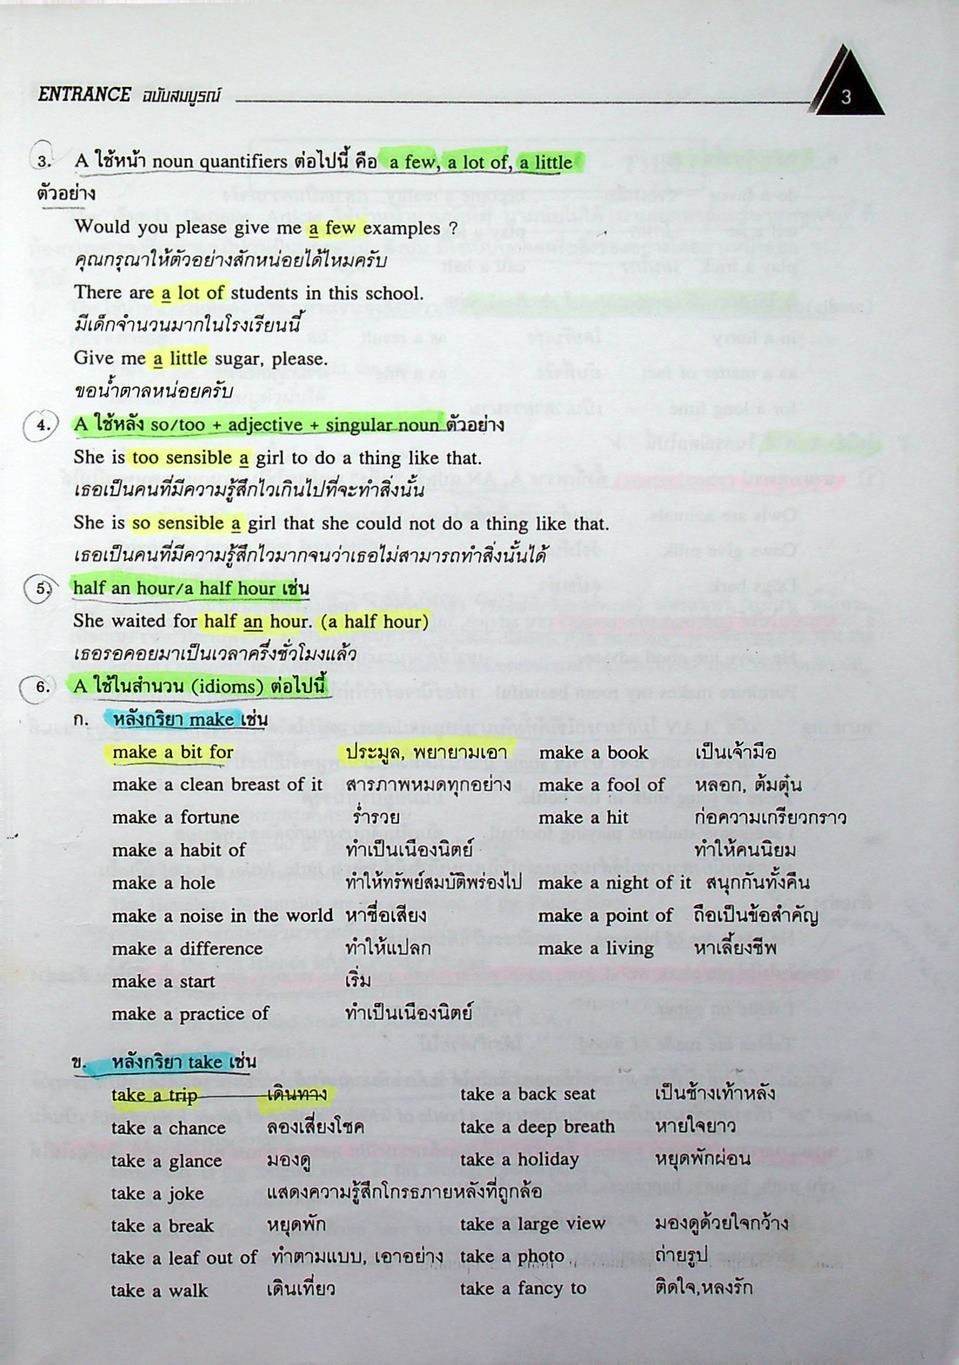 ENTRANCE ฉบับสมบูรณ์
3
3. A ใช้หน้า noun quantifiers ต่อไปนี้ คือ a few, a lot of, a little
ตัวอย่าง
Would you please give me a few examples ?
คุณกรุณาให้ตัวอย่างสักหน่อยได้ไหมครับ
There are a lot of students in this school.
มีเด็กจำนวนมากในโรงเรียนนี้
Give me a little sugar, please.
ขอน้ำตาลหน่อยครับ
4. A ใช้หลัง so/too + adjective + singular noun ตัวอย่าง
She is too sensible a girl to do a thing like that.
เธอเป็นคนที่มีความรู้สึกไวเกินไปที่จะทำสิ่งนั้น
She is so sensible a girl that she could not do a thing like that.
เธอเป็นคนที่มีความรู้สึกไวมากจนว่าเธอไม่สามารถทำสิ่งนั้นได้
5. half an hour/a half hour เช่น
She waited for half an hour. (a half hour)
เธอรอคอยมาเป็นเวลาครึ่งชั่วโมงแล้ว
6. A ใช้ในสำนวน (idioms) ต่อไปนี้
ก. หลังกริยา make เช่น
make a bit for ประมูล, พยายามเอา make a book เป็นเจ้ามือ
make a clean breast of it สารภาพหมดทุกอย่าง make a fool of หลอก, ต้มตุ๋น
make a fortune ร่ำรวย make a hit ก่อความเกรียวกราว
make a habit of ทำเป็นเนืองนิตย์ ทำให้คนนิยม
make a hole ทำให้ทรัพย์สมบัติพร่องไป make a night of it สนุกกันทั้งคืน
make a noise in the world หาชื่อเสียง make a point of ถือเป็นข้อสำคัญ
make a difference ทำให้แปลก make a living หาเลี้ยงชีพ
make a start เริ่ม
make a practice of ทำเป็นเนืองนิตย์
ข. หลังกริยา take เช่น
take a trip เดินทาง take a back seat เป็นช้างเท้าหลัง
take a chance ลองเสี่ยงโชค take a deep breath หายใจยาว
take a glance มองดู take a holiday หยุดพักผ่อน
take a joke แสดงความรู้สึกโกรธภายหลังที่ถูกล้อ
take a break หยุดพัก take a large view มองดูด้วยใจกว้าง
take a leaf out of ทำตามแบบ, เอาอย่าง take a photo ถ่ายรูป
take a walk เดินเที่ยว take a fancy to ติดใจ,หลงรัก